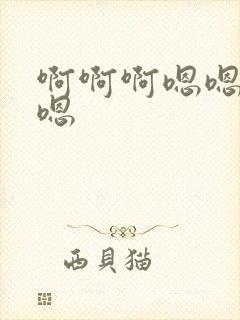 啊啊啊嗯嗯
嗯
西貝猫